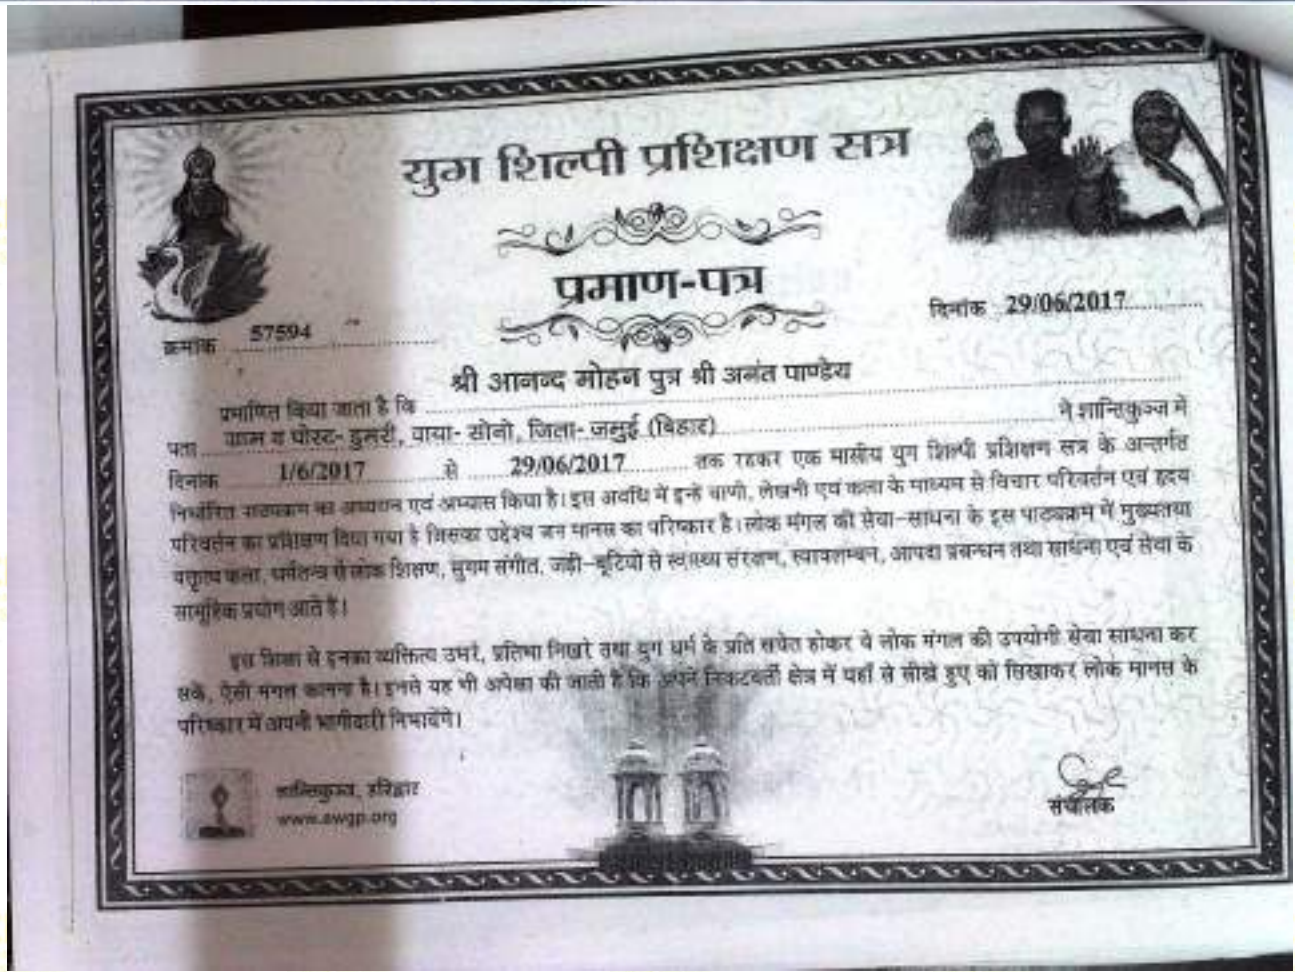 युग शिल्पी प्रशिक्षण सत्र
प्रमाण-पत्र
दिनांक 29/06/2017
क्रमांक 57594
श्री आनन्द मोहन पुत्र श्री अनंत पाण्डेय
प्रमाणित किया जाता है कि
पता ग्राम व पोस्ट- डुमरी, वाया- सोनो, जिला- जमुई (बिहार) ने शान्तिकुञ्ज में
दिनांक 1/6/2017 से 29/06/2017 तक रहकर एक मासीय युग शिल्पी प्रशिक्षण सत्र के अन्तर्गत
निर्धारित पाठ्यक्रम का अध्ययन एवं अभ्यास किया है। इस अवधि में इन्हें वाणी, लेखनी एवं कला के माध्यम से विचार परिवर्तन एवं हृदय
परिवर्तन का प्रशिक्षण दिया गया है जिसका उद्देश्य जन मानस का परिष्कार है। लोक मंगल की सेवा-साधना के इस पाठ्यक्रम में मुख्यतया
वक्तृत्व कला, धर्मतन्त्र से लोक शिक्षण, सुगम संगीत, जड़ी-बूटियों से स्वास्थ्य संरक्षण, स्वावलम्बन, आपदा प्रबन्धन तथा साधना एवं सेवा के
सामूहिक प्रयोग आते हैं।
इस शिक्षा से इनका व्यक्तित्व उभरे, प्रतिभा निखरे तथा युग धर्म के प्रति सचेत होकर वे लोक मंगल की उपयोगी सेवा साधना कर
सकें, ऐसी मंगल कामना है। इनसे यह भी अपेक्षा की जाती है कि अपने निकटवर्ती क्षेत्र में यहाँ से सीखे हुए को सिखाकर लोक मानस के
परिष्कार में अपनी भागीदारी निभायेंगे।
शान्तिकुञ्ज, हरिद्वार
www.awgp.org
संचालक